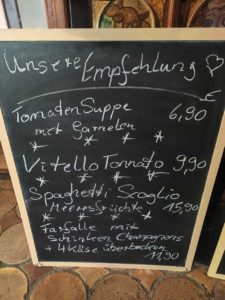 Unsere
Empfehlung ♡
€
Tomaten Suppe 6,90
mit Garnelen
* * *
Vitello Tonnato 9,90
* * *
Spaghetti Scoglio
Meeresfrüchte 15,90
* * *
Farfalle mit
Schinken, Champignons
+ 4 Käse überbacken
11,90